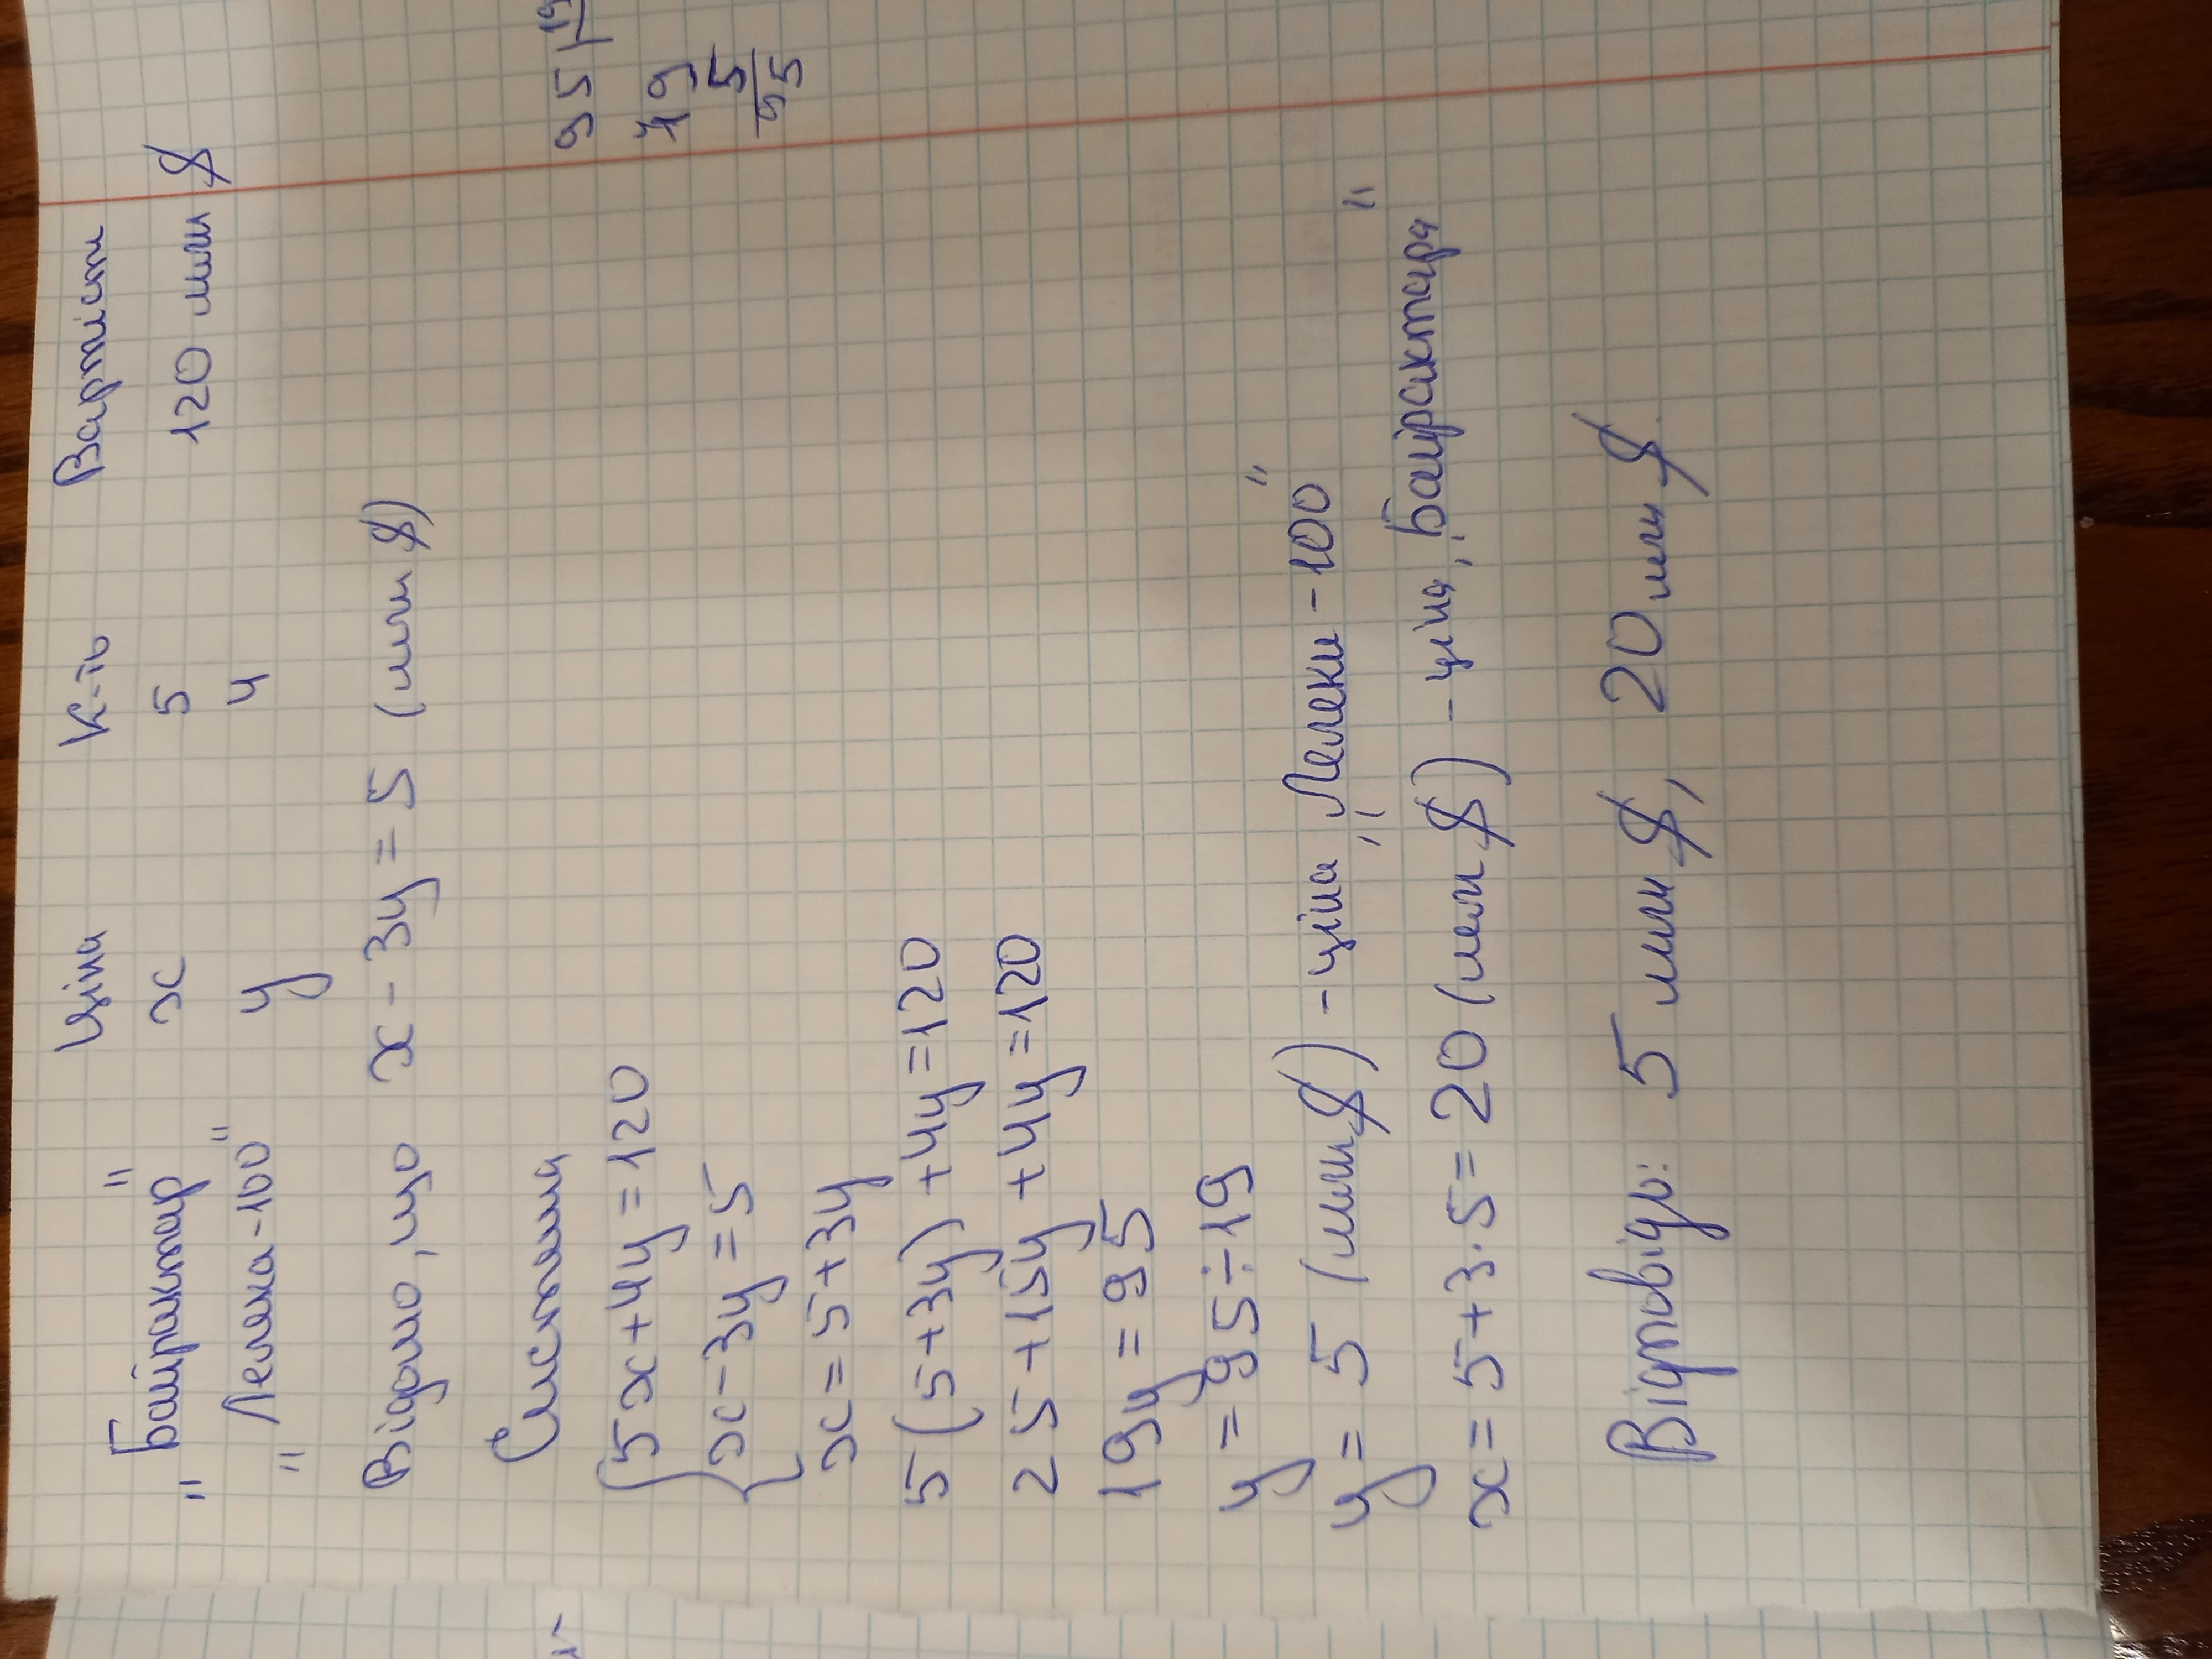 Ціна К-ть Вартість
„Байрактар" х 5 120 млн $
„Лелека-100" у 4
Відомо, що х - 3у = 5 (млн $)
Система
{5х + 4у = 120
х - 3у = 5
х = 5 + 3у
5(5+3у) + 4у = 120
25 + 15у + 4у = 120
19у = 95
у = 95 ÷ 19
у = 5 (млн $) - ціна „Лелеки-100"
х = 5 + 3·5 = 20 (млн $) - ціна „Байрактара"
Відповідь: 5 млн $, 20 млн $.
95 19
19
5
95